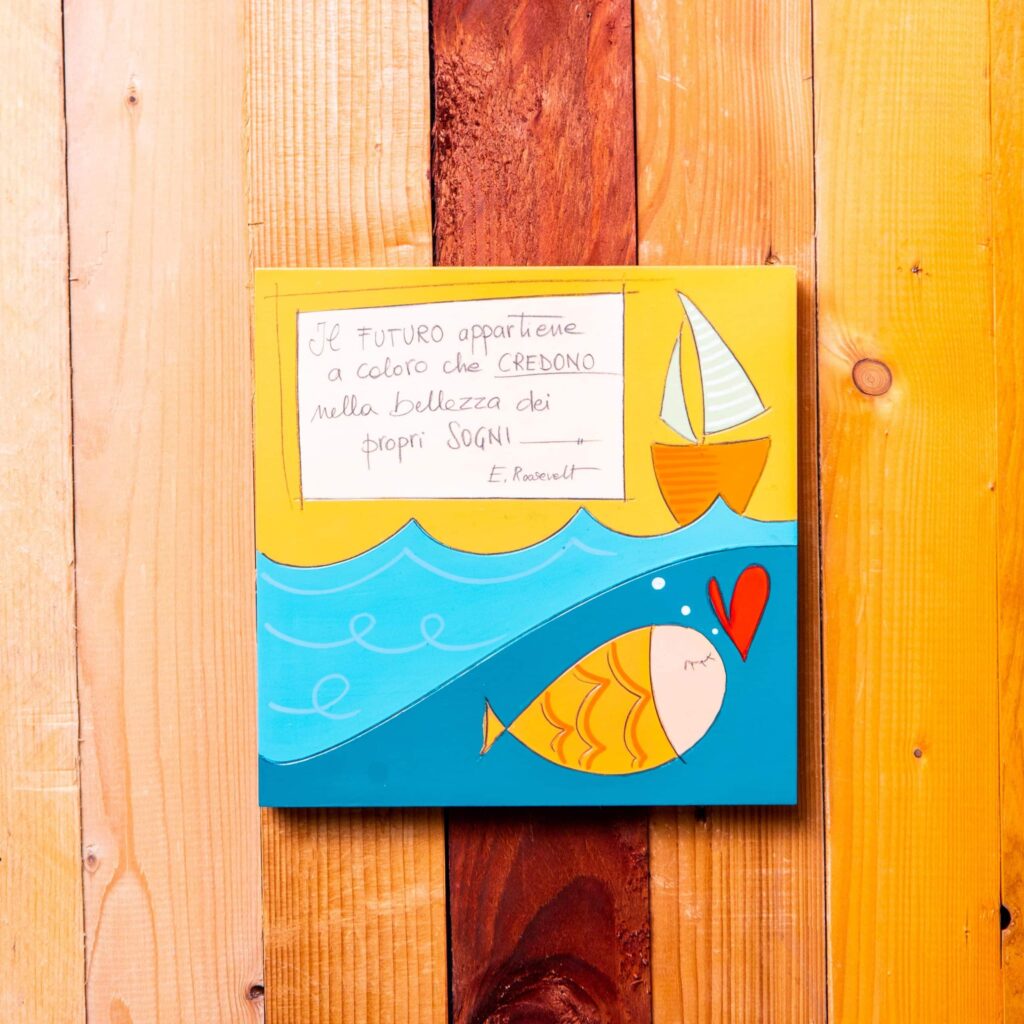 Il FUTURO appartiene
a coloro che CREDONO
nella bellezza dei
propri SOGNI
E. Roosevelt